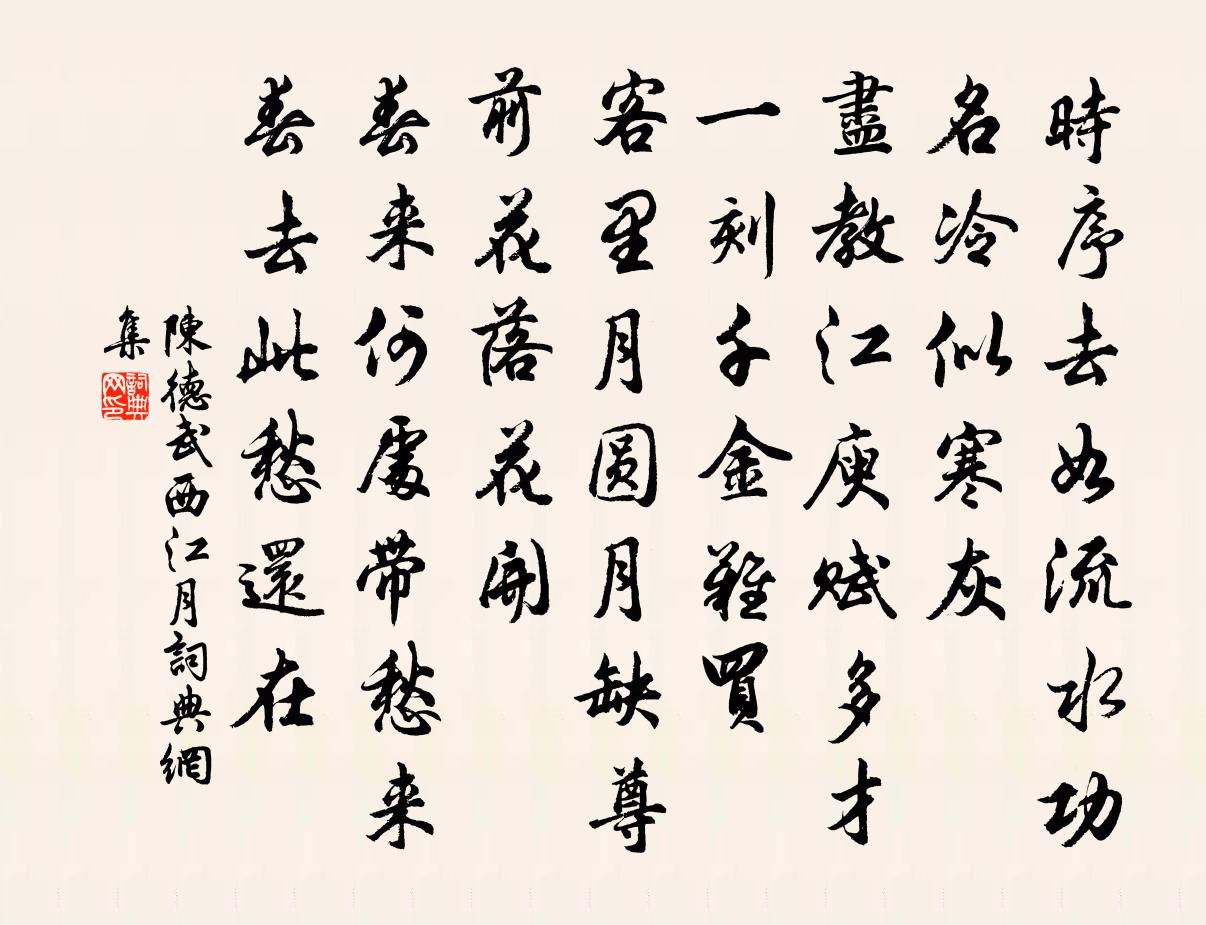 時序去如流水功
名冷似寒灰
盡教江庾賦多才
一刻千金難買
客里月圆月缺尊
前花落花開
春来何處帶愁来
春去此愁還在
陳德武西江月詞典網
集
詞典网印